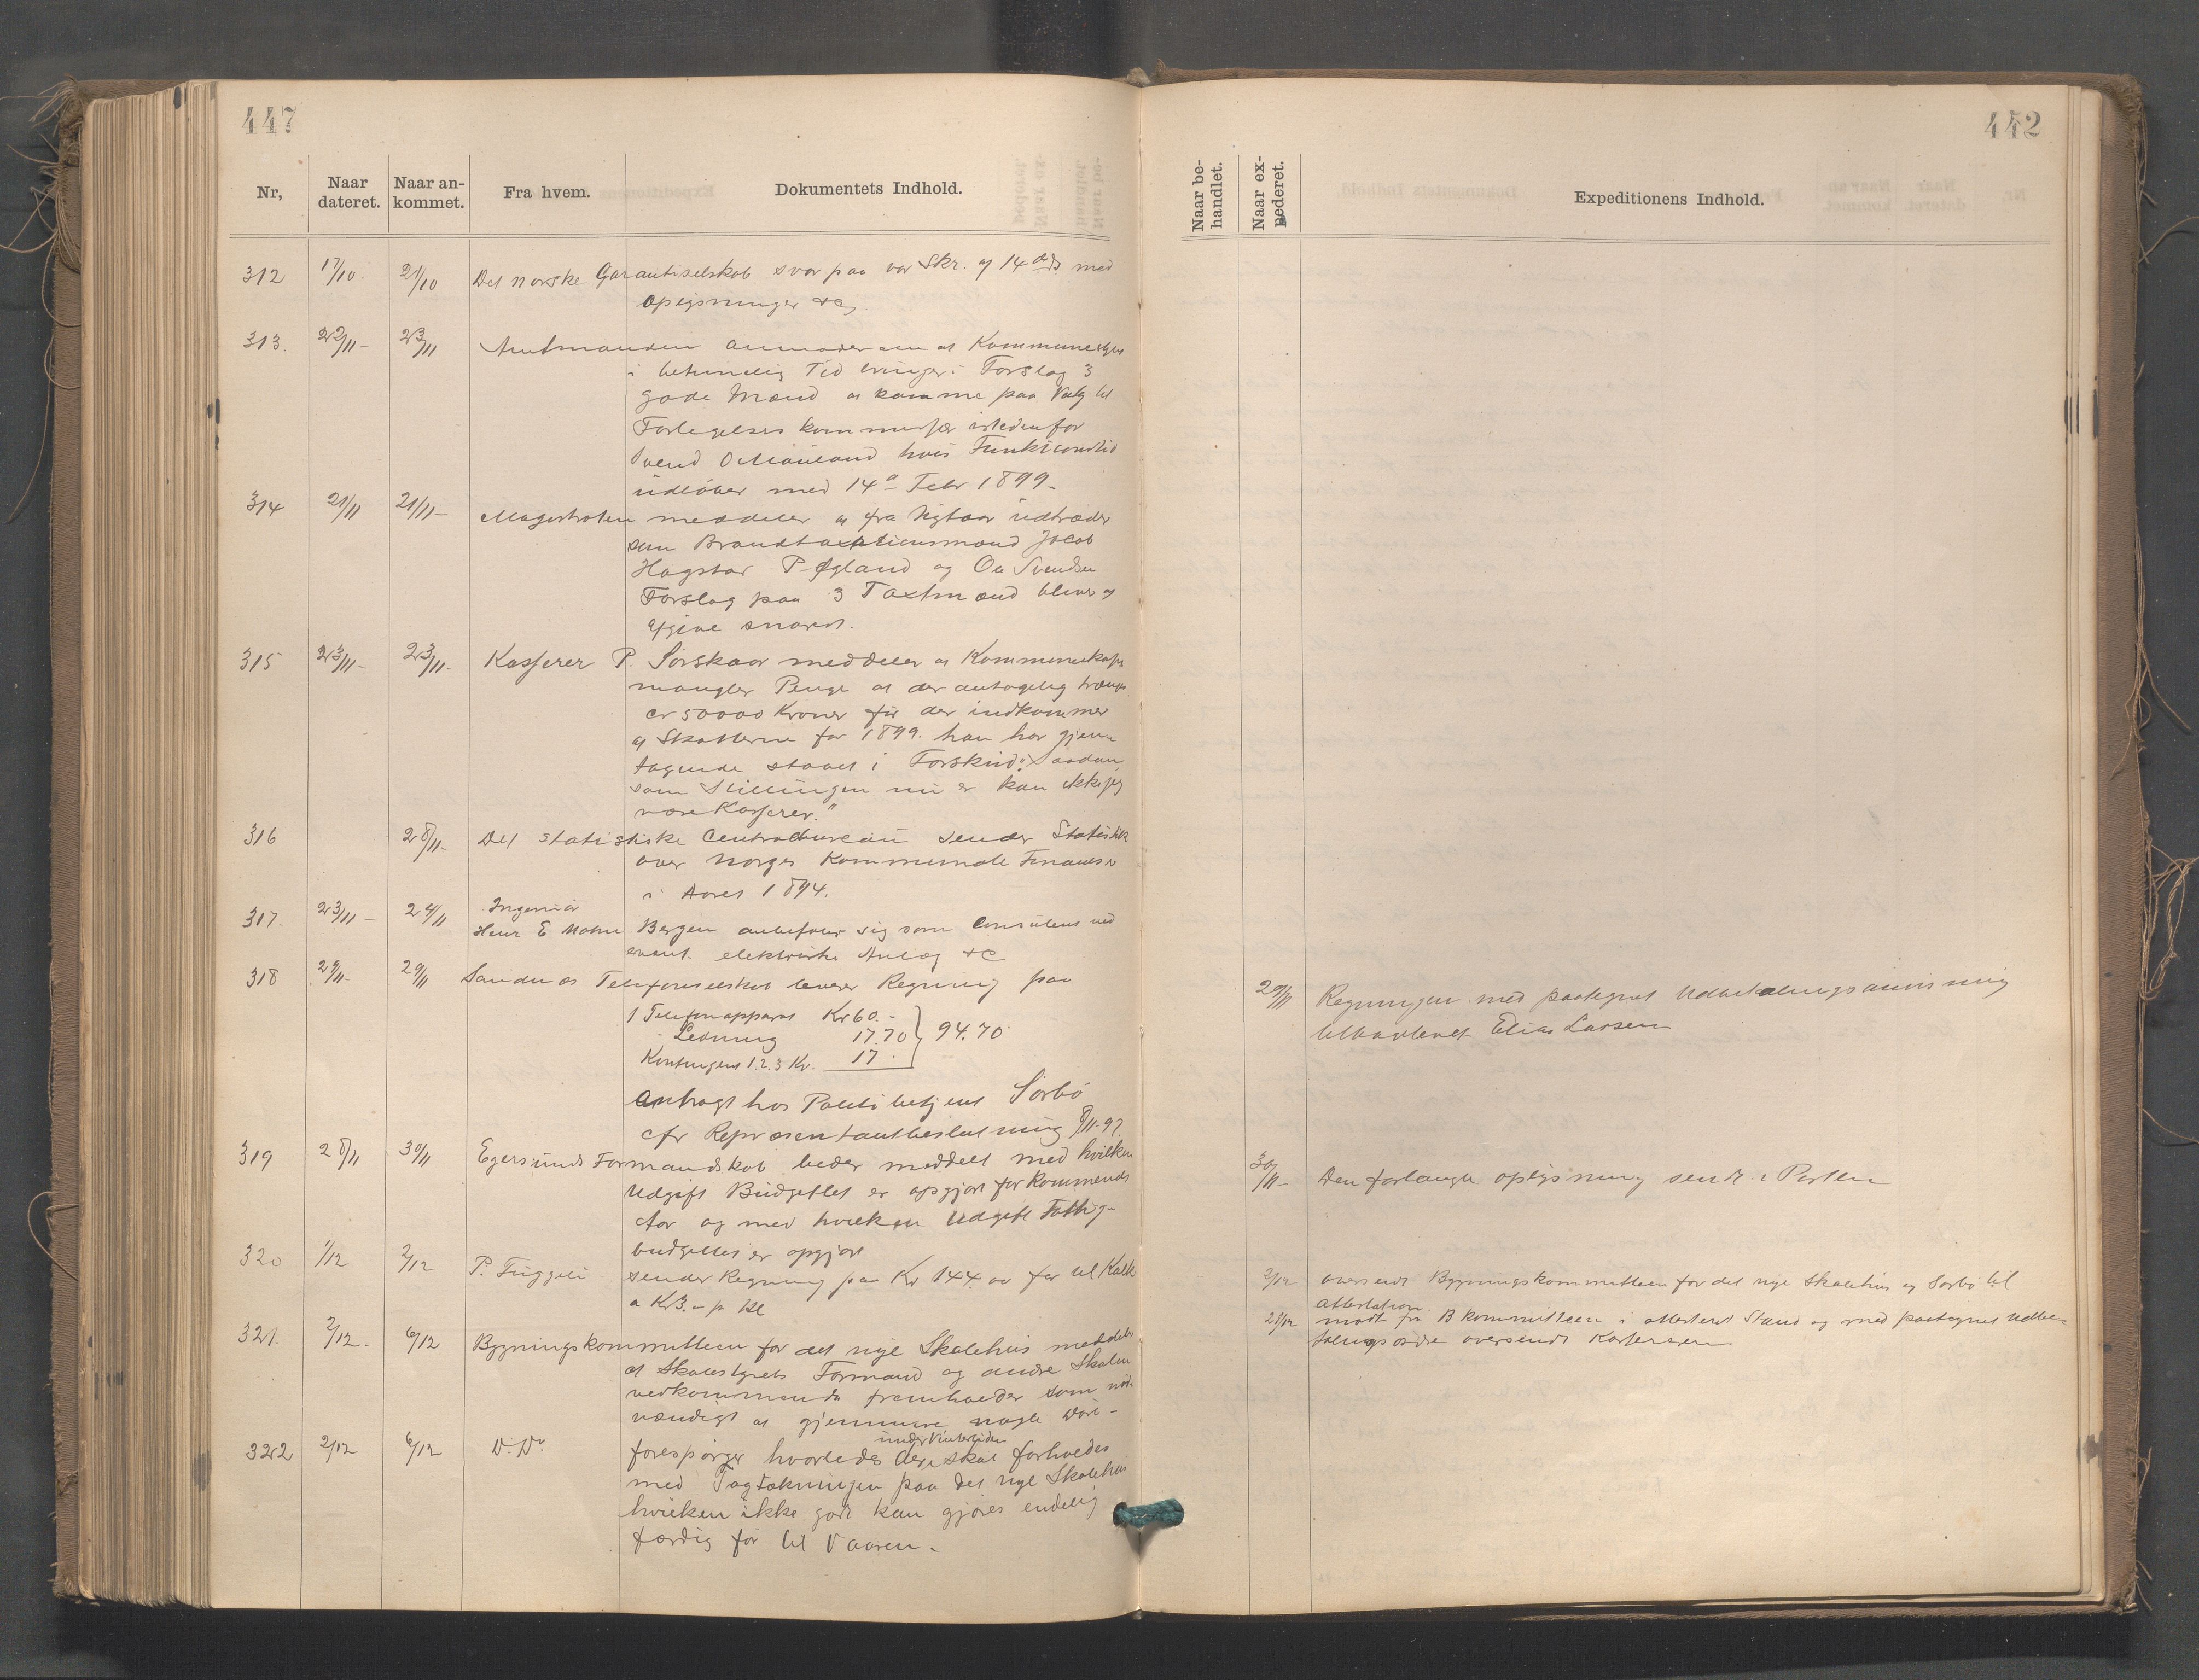 447
Nr,
Naar dateret.
Naar ankommet.
Fra hvem.
Dokumentets Indhold.
312 17/10. 21/10 Det norske Garantiselskab svar paa vor Skr. af 14 ds med
oplysninger &c.
313. 22/11- 23/11 Amtmanden anmoder om at Kommunestyret
i betimelig Tid bringer i Forslag 3
gode Mænd at komme paa Valg til
Forligelseskommissær istedenfor
Svend O Maudland hvis Funktionstid
udløber med 14 Febr 1899-
314 21/11 21/11- Magistraten meddeler at fra Nytaar udtræder
som Brandtaxtionsmænd Jacob
Hagstar P. Øgland og Svendsen
Forslag paa 3 Taxtmænd blives at
afgive snarest.
315 23/11- 23/11- Kasserer P. Sørskaar meddeler at Kommunekassen
mangler Penge at der antagelig trænges
cr 50000 Kroner før der indkommer
af Skatterne for 1899. han har gjen-
tagende staaet i Forskud. "Saadan
som Stillingen nu er kan ikke jeg
være Kasserer."
316 28/11- Det statistiske Centralbureau sender Statistik
over Norges Kommunale Finanser
i Aaret 1894.
317. 23/11- 24/11 Ingeniør
Henr E Mohn Bergen anbefaler sig som Consulent ved
event. elektriske Anlæg &c
318 29/11- 29/11 Sandnæs Telefonselskab leverer Regning paa
1 Telefonapparat Kr 60.-
- Ledning 17.70 94.70
Kontingent 1.2.3 Kv. 17
anbragt hos Politibetjent Sørbø
cfr Repræsentantbeslutning 8/11-97.
319 28/11 30/11 Egersunds Formandskab beder meddelt med hvilken
Udgift Budgettet er opgjort for kommende
Aar og med hvilken Udgift Fattig-
budgettet er opgjort
320 1/12 2/12 P. Figgeli sender Regning paa Kr 144.00 for Hl Kalk
a Kr 3.- p Hl
321. 2/12. 6/12 Bygningskommitteen for det nye Skolehus meddeler
at Skolestyrets Formand og andre Skolen
vedkommende fremholder som nød-
vændigt at gjemme nogle
322 2/12 6/12 D. Do
under Vintertiden
forespørger hvorledes der skal forholdes
med Tagtækningen paa det nye Skolehus
hvilken ikke godt kan gjøres endelig
færdig før til Vaaren.
442
Naar behandlet.
Naar expederet.
Expeditionens Indhold.
29/11 Regningen med paategnet Udbetalingsanvisning
tilbagelevet Elias Larsen
30/11- Den forlangte oplysning sendt i Posten
2/12 oversendt Bygningskommitteen for det nye Skolehus og Sørbø til
Attestation.
21/12 modt fra B kommitteen i attesteret Stand og med paategnet Udbe-
talingsordre oversendt Kassereren